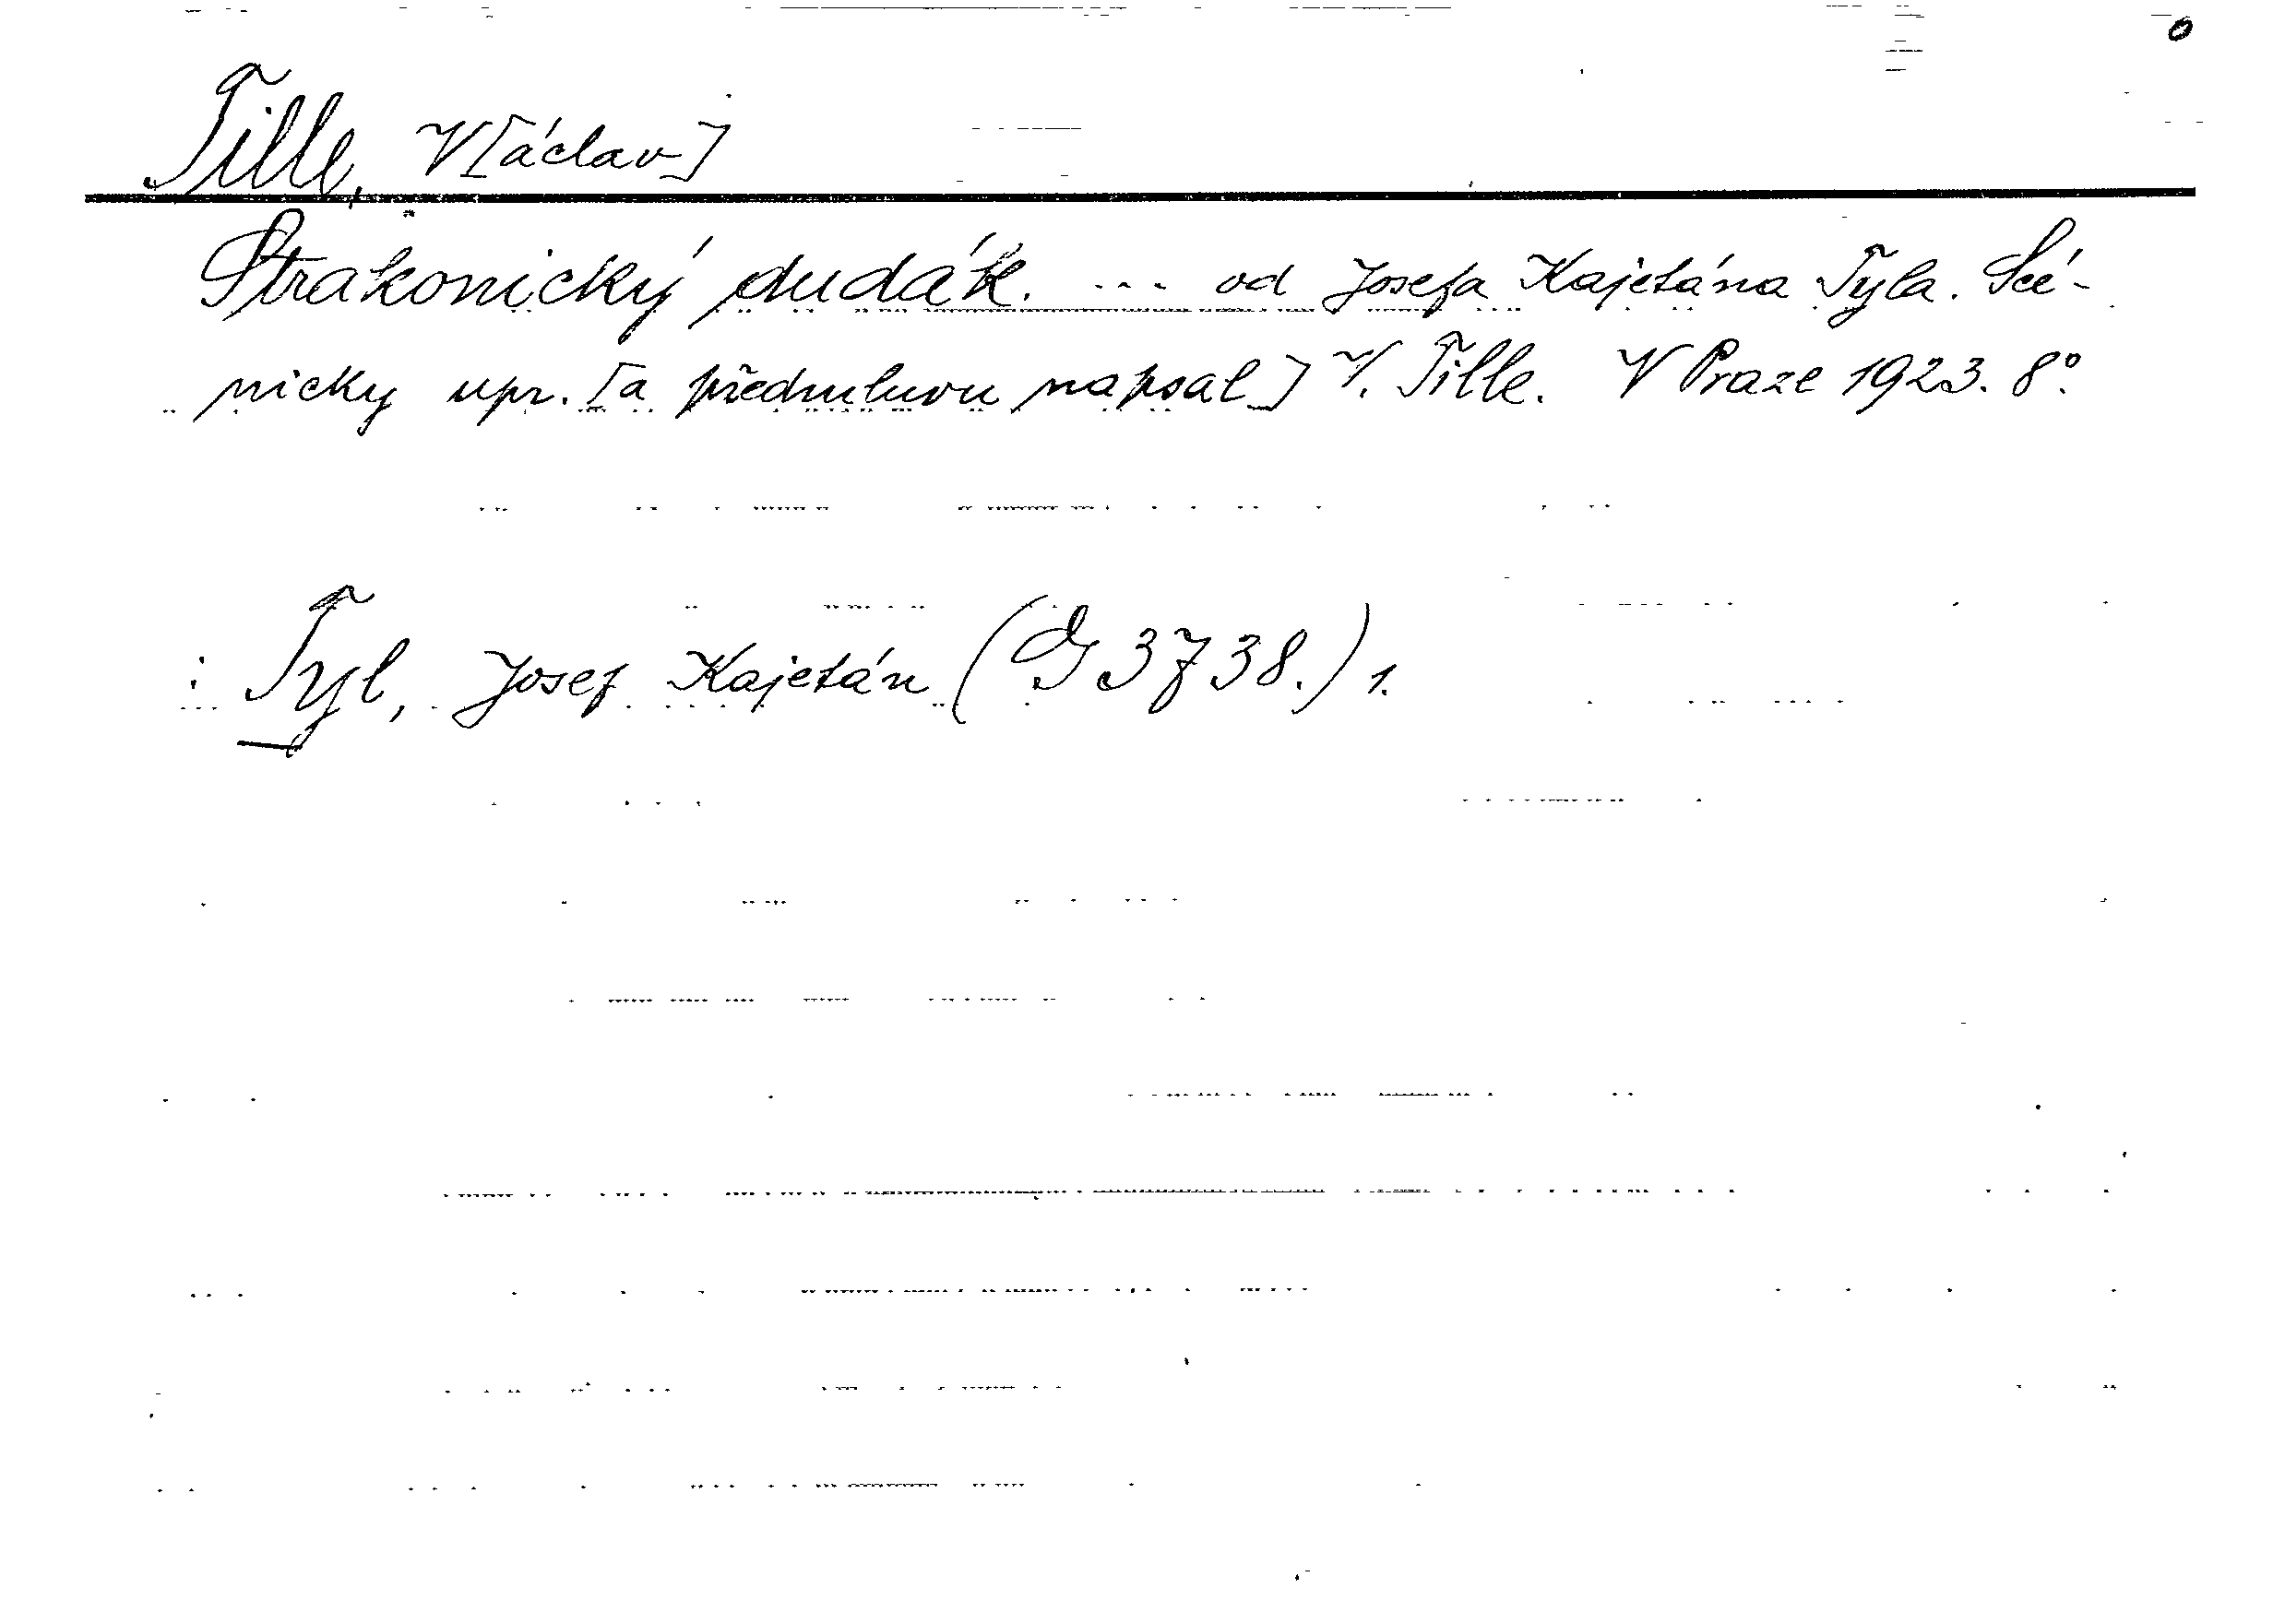 Tille, V[áclav]
Strakonický dudák. ... od Josefa Kajetána Tyla. Scé-
nicky upr. [a předmluvu napsal] V. Tille. V Praze 1923. 8°.
: Tyl, Josef Kajetán (G 3738.) 1.